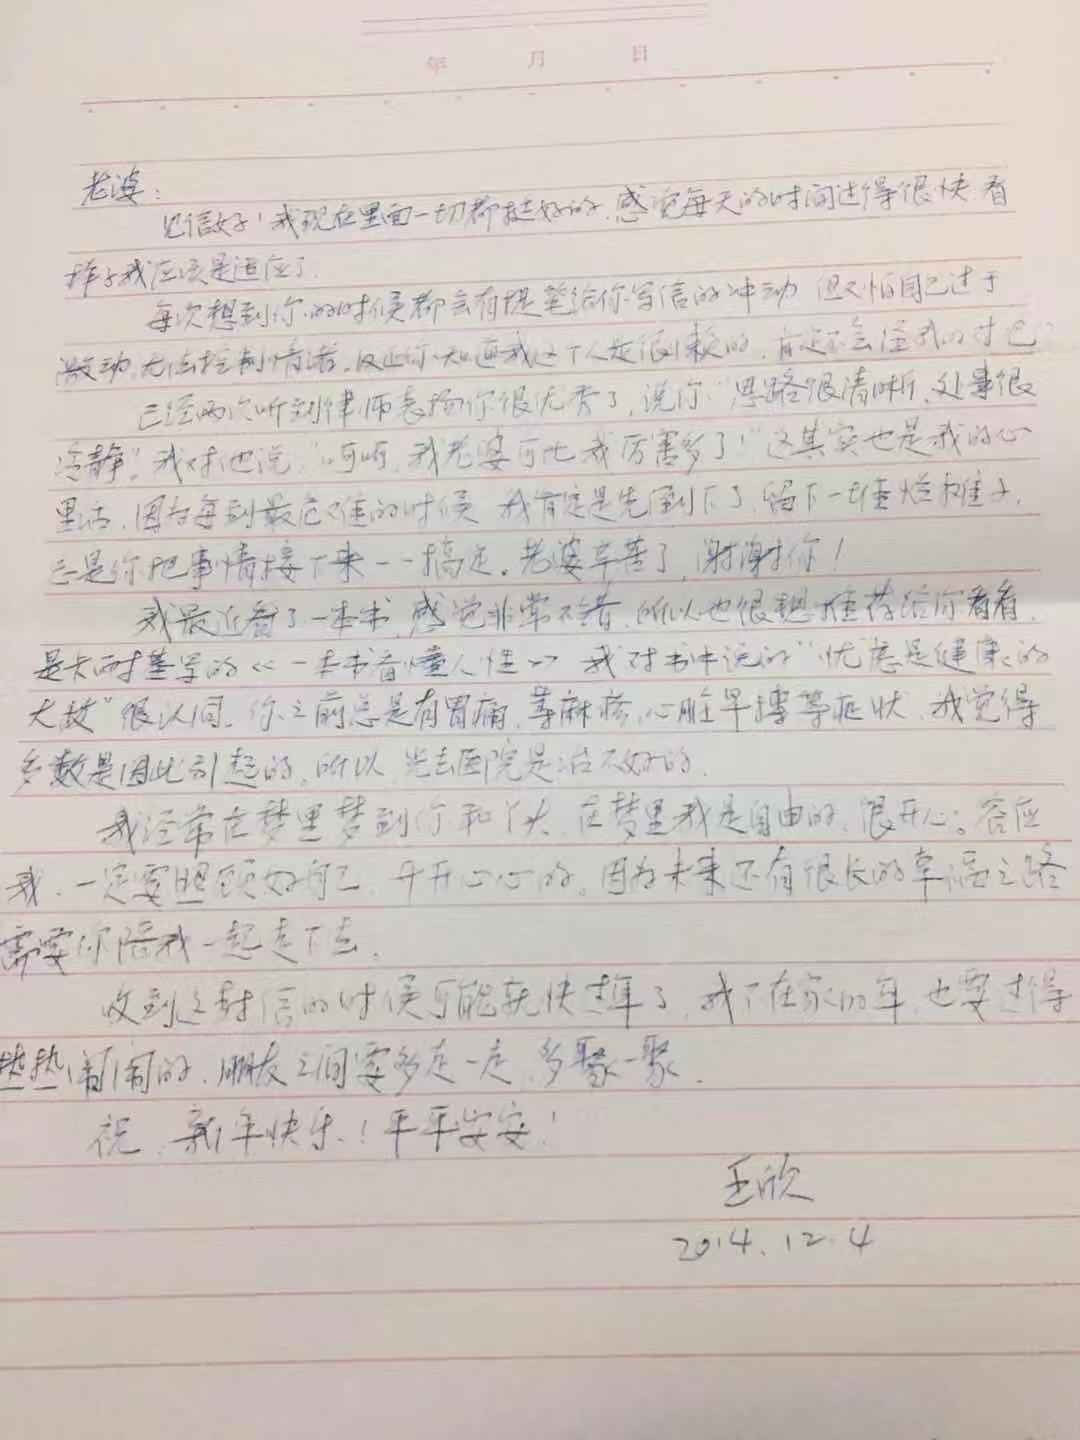 年 月 日
老婆：
见信好！我现在里面一切都挺好的，感觉每天的时间过得很快，看
样子我应该是适应了。
每次想到你的时候都会有提笔给你写信的冲动，但又怕自己过于
激动，无法控制情绪，反正你知道我这个人是很懒的，肯定不会怪我的对吧？
已经两次听到律师表扬你很优秀了，说你"思路很清晰，处事很
冷静"。我对他说："呵呵，我老婆可比我厉害多了！"这其实也是我的心
里话，因为每到最危难的时候，我肯定是先倒下了，留下一堆烂摊子，
总是你把事情接下来一一搞定。老婆辛苦了，谢谢你！
我最近看了一本书，感觉非常不错，所以也很想推荐给你看看，
是卡耐基写的《一本书看懂人性》，我对书中说的"忧虑是健康的
大敌"很认同，你之前总是有胃痛、荨麻疹、心脏早搏等症状，我觉得
多数是因此引起的，所以，光去医院是治不好的。
我经常在梦里梦到你和丫头，在梦里我是自由的，很开心。答应
我，一定要照顾好自己，开开心心的，因为未来还有很长的幸福之路
需要你陪我一起走下去。
收到这封信的时候可能就快过年了，我不在家的年，也要过得
热热闹闹的，朋友之间要多走一走，多聚一聚。
祝，新年快乐！平平安安！
王欣
2014.12.4